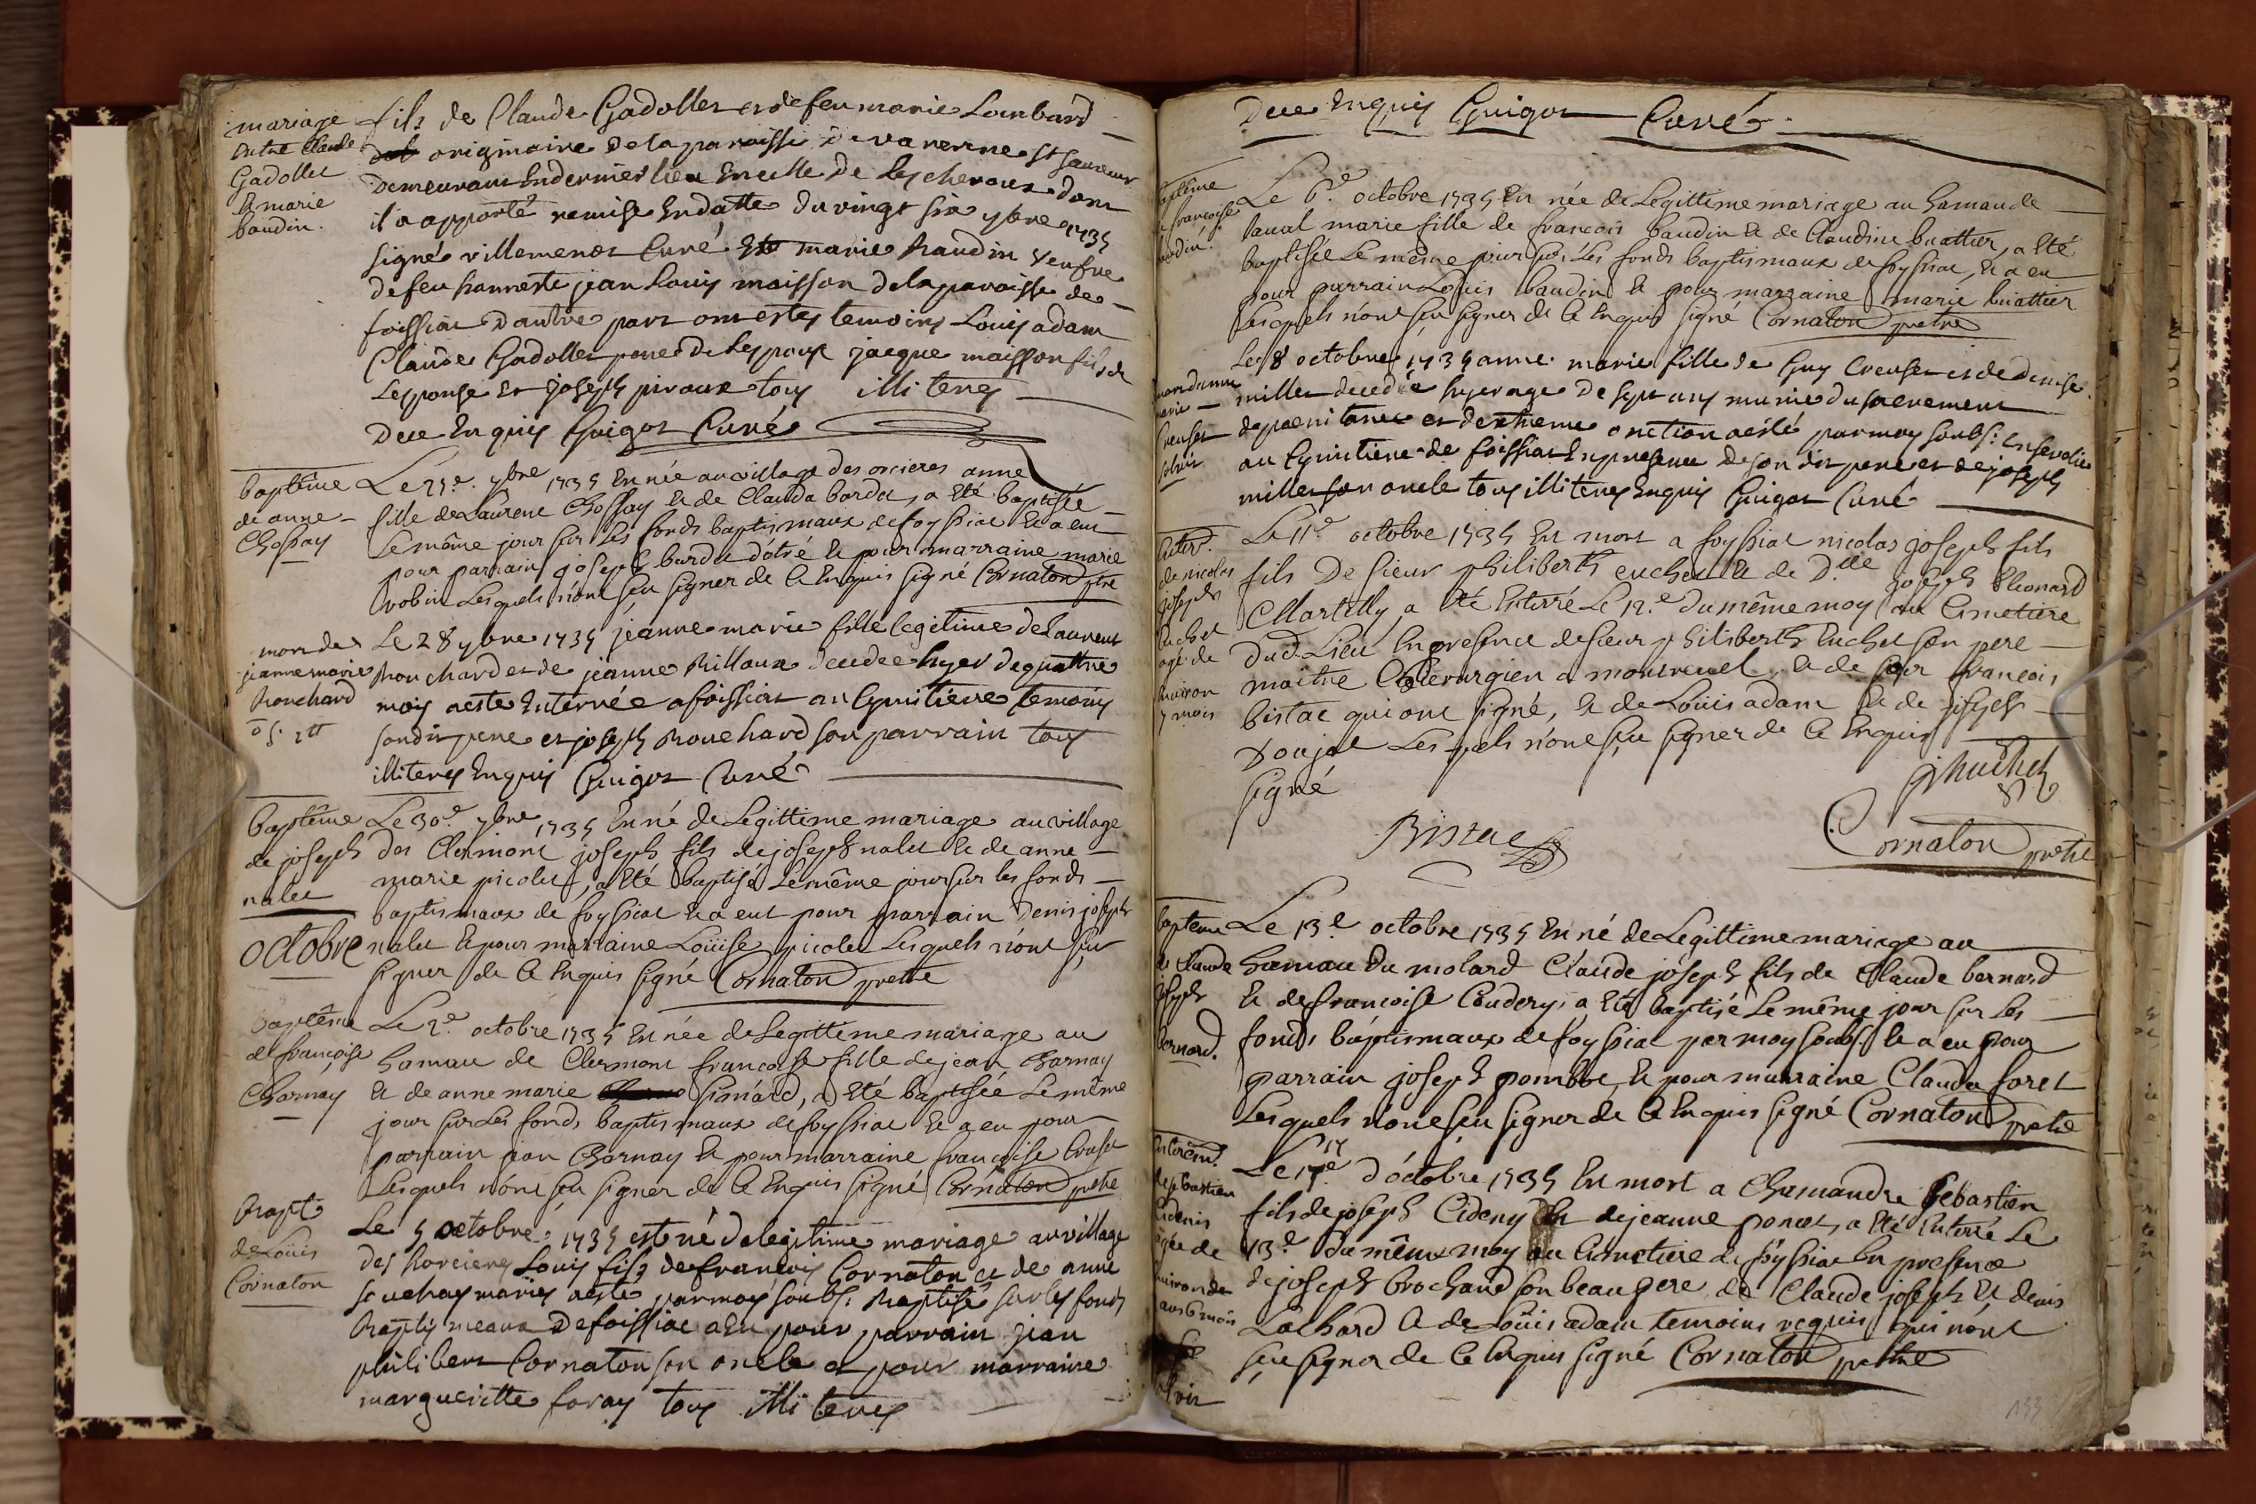 mariage
entre Claude
Gadollet
& marie
baudin.
fils de Claude Gadollet et de feu marie Lombard
originaire de la paroisse de varenne st sauveur
demeurant en dernier lieu en celle de Lescheroux dont
il a apporté remise en datte du vingt six 7bre 1735
signé villemenot Curé Et marie Baudin veufve
de feu honneste jean Louis moisson de la paroisse de
foissiat d'autre part ont estes temoins Louis adam
Claude Gadollet pere de Lespoux jacque moisson fils de
Lespouse et joseph piroux tous illiteres
Dece Enquis Guigot Curé
baptême
de anne
Chossay
Le 25e. 7bre 1735 Est née au village des orcieres anne
fille de Laurent Chossay & de Clauda bardet, a Eté baptisée
Le même jour sur Les fonds baptismaux de foyssiat & a eut
pour parrain joseph bardet d'otré & pour marraine marie
robin Lesquels n'ont sçu signer de Ce Enquis signé Cornaton ptre
mort de
jeanne marie
Bouchard
Le 28 7bre 1735 jeanne marie fille legitime de Laurent
Bouchard et de jeanne Billoux decedee hyer de quattre
mois a este Enterrée a foissiat au Cymitiere temoins
son dit pere et joseph Bouchard son parrain tous
illiteres Enquis Guigot Curé
baptême
de joseph
nalet
Le 30e 7bre 1735 Est né de Legittime mariage au village
des Clermont joseph fils de joseph nalet & de anne
marie picolet, a Eté baptisé Le même jour sur les fonds
baptismaux de foyssiat & a eut pour parrain Denis joseph
nalet & pour marraine Loüise picolet Lesquels n'ont sçu
signer de Ce Enquis signé Cornaton pretre
octobre
baptême
de françoise
Charnay
Le 2e. octobre 1735 Est née de Legittime mariage au
hamau de Clermont françoise fille de jean Charnay
& de anne marie Simard, a Eté baptisée Le même
jour sur Les fonds baptismaux de foyssiat & a eu pour
parrain jean Charnay & pour marraine françoise
Lesquels n'ont sçu signer de Ce Enquis signé Cornaton pretre
Bapt
de Louis
Cornaton
Le 5 octobre 1735 est né de legitime mariage au village
des horcieres Louis fils de francois Cornaton et de anne
mariés a esté par moy soubs. Baptisé sur les fonds
Baptismeaux de foissiat a Eu pour parrain jean
philibert Cornaton son oncle et pour marraine
margueritte foray tous illiteres
Dece Enquis Guigot Curé
baptême
françoise
baudin.
Le 6e. octobre 1735 Est née de Legittime mariage au hamau de
laval marie fille de francois baudin & de Claudine buattier, a Eté
baptisée Le même jour sur Les fonds baptismaux de foyssiat, & a eu
pour parrain Louis baudin & pour marraine marie buattier
Lesquels n'ont sçu signer de Ce Enquis signé Cornaton pretre
mort d'anne
marie
Creuset
Le 8 octobre 1735 anne marie fille de Guy Creuset et de denise
millet decedée hyer agee de sept ans munie du sacrement
de paenitance et d'extreme onction a esté par moy soubs: Ensevelie
au Cymitiere de foissiat En presence de son dit pere et de joseph
millet son oncle tous illiteres Enquis Guigot Curé
Enterr.
de nicolas
joseph
Euchet
agé de
Environ
7 mois
Le 11e octobre 1735 Est mort a foyssiat nicolas joseph fils
fils De sieur philiberth euchet & de Dlle joseph Eleonard
Martelly, a Eté Enterré Le 12e. du même moy au Cimetiere
dud. Lieu En presence de sieur philiberth Euchet son pere
maître Chirurgien a montrevel, & de sieur françois
bistac qui ont signé, & de Loüis adam & de joseph
Lesquels n'ont sçu signer de Ce Enquis
signé
Bistac
Cornaton pretre
bapteme
de Claude
joseph
bernard.
Le 13.e octobre 1735 Est né de Legittime mariage au
hamau du molard Claude joseph fils de Claude bernard
& de françoise Coudery, a Eté baptisé Le même jour sur Les
fonds baptismaux de foyssiat par moy soubs. & a eu pour
parrain joseph & pour marraine Clauda foret
Lesquels n'ont sçu signer de Ce Enquis signé Cornaton pretre
Enterem.
de sebastien
Cideni
agée de
Environ de
ans 6 mois
Le 17e. d'octobre 1735 Est mort a Chamandre Sebastien
fils de joseph Cideny & de jeanne poncet, a Eté Enterré Le
Du même moy au Cimetiere de foyssiat En presence
de joseph brochard son beau pere de Claude joseph & denis
Lachard & de Loüis adam temoins requis qui n'ont
sçu signer de Ce Enquis signé Cornaton pretre